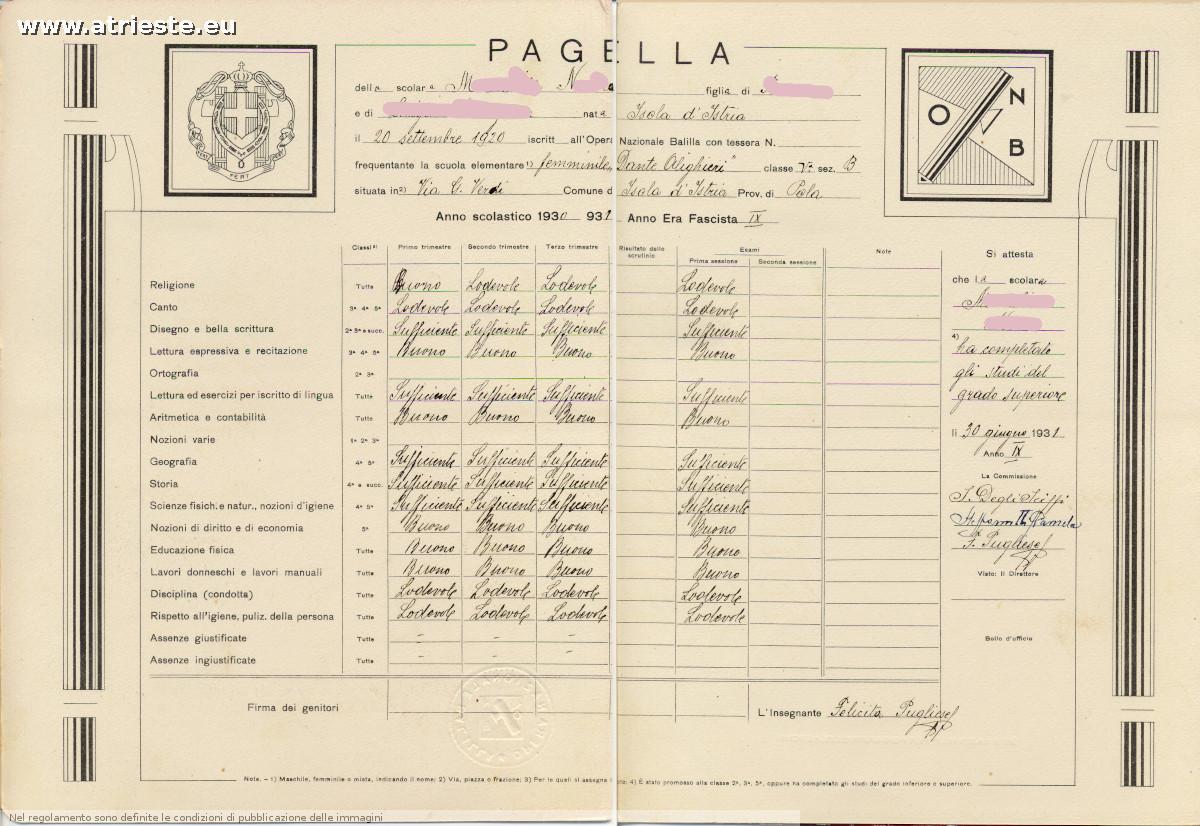 www.atrieste.eu
PAGELLA
della scolara M N figlia di
e di nata Isola d'Istria
il 20 settembre 1920 iscritt all'Opera Nazionale Balilla con tessera N.
frequentante la scuola elementare 1) femminile, Dante Alighieri" classe Vª sez. B
situata in 2) Via G. Verdi Comune d Isola d'Istria Prov. di Pola
Anno scolastico 1930 931 Anno Era Fascista IX
FERT
O N B
Classi 3) Primo trimestre Secondo trimestre Terzo trimestre Risultato dello scrutinio Esami Note
Prima sessione Seconda sessione
Religione Tutte Buono Lodevole Lodevole Lodevole
Canto 3ª 4ª 5ª Lodevole Lodevole Lodevole Lodevole
Disegno e bella scrittura 2ª 3ª e succ. Sufficiente Sufficiente Sufficiente Sufficiente
Lettura espressiva e recitazione 3ª 4ª 5ª Buono Buono Buono Buono
Ortografia 2ª 3ª
Lettura ed esercizi per iscritto di lingua Tutte Sufficiente Sufficiente Sufficiente Sufficiente
Aritmetica e contabilità Tutte Buono Buono Buono Buono
Nozioni varie 1ª 2ª 3ª
Geografia 4ª 5ª Sufficiente Sufficiente Sufficiente Sufficiente
Storia 4ª e succ. Sufficiente Sufficiente Sufficiente Sufficiente
Scienze fisich. e natur., nozioni d'igiene 4ª 5ª Sufficiente Sufficiente Sufficiente Sufficiente
Nozioni di diritto e di economia 5ª Buono Buono Buono Buono
Educazione fisica Tutte Buono Buono Buono Buono
Lavori donneschi e lavori manuali Tutte Buono Buono Buono Buono
Disciplina (condotta) Tutte Lodevole Lodevole Lodevole Lodevole
Rispetto all'igiene, puliz. della persona Tutte Lodevole Lodevole Lodevole Lodevole
Assenze giustificate Tutte - - -
Assenze ingiustificate Tutte - - -
Firma dei genitori
L'Insegnante Felicita Pugliese
Si attesta
che la scolara
4) ha completato
gli studi del
grado superiore
li 30 giugno 1931
Anno IX
La Commissione
Degli
F. Pugliese
Visto: Il Direttore
Bollo d'ufficio
Note. - 1) Maschile, femminile o mista, indicando il nome; 2) Via, piazza o frazione; 3) Per le quali si assegna 4) È stato promosso alla classe 2ª, 3ª, 5ª, oppure ha completato gli studi del grado inferiore o superiore.
Nel regolamento sono definite le condizioni di pubblicazione delle immagini